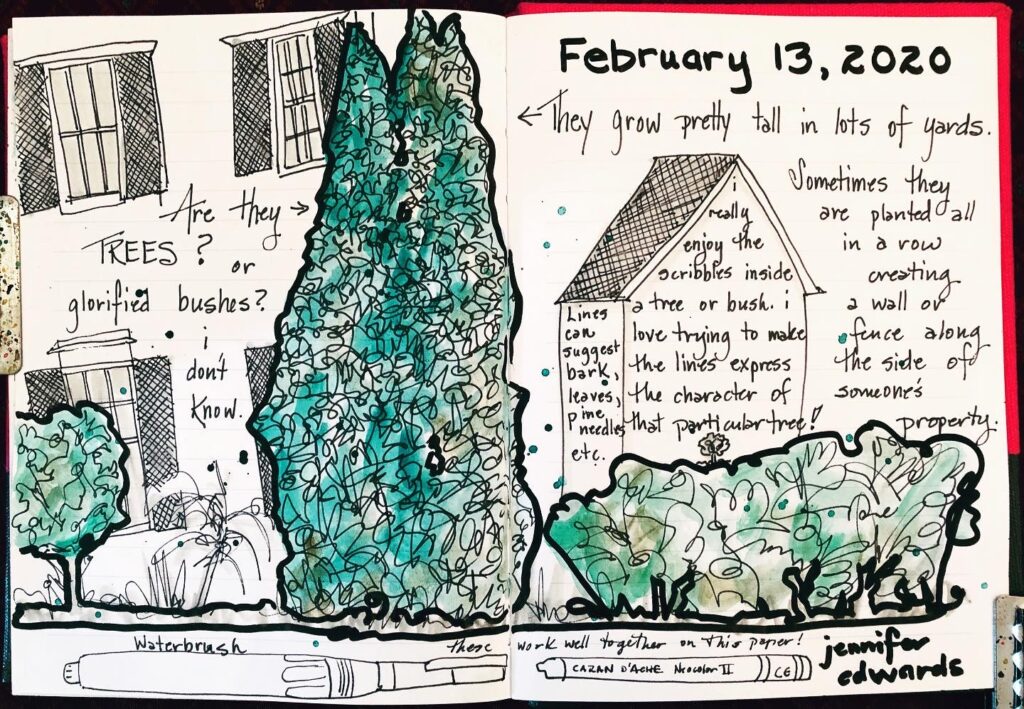 February 13, 2020
← They grow pretty tall in lots of yards.
Are they →
TREES?
or
glorified bushes?
i
don't
know.
i
really
enjoy the
scribbles inside
a tree or bush. i
love trying to make
the lines express
the character of
that particular tree!
Lines
can
suggest
bark,
leaves,
pine
needles
etc.
Sometimes they
are planted all
in a row
creating
a wall or
fence along
the side of
someone's
property.
Waterbrush
these work well together on this paper!
CARAN D'ACHE Neocolor II
CE
jennifer
edwards